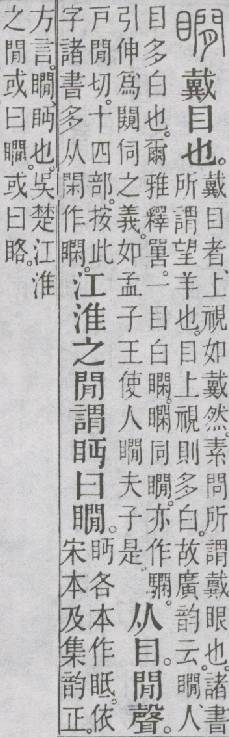 瞯 戴目也。戴目者、上視如戴然。素問所謂戴眼也。諸書
所謂望羊也。目上視則多白。故廣韵云。瞯、人
目多白也。爾雅釋嘼。一目白瞷。瞷同瞯。亦作𩦂。
引伸爲闚伺之義。如孟子王使人瞯夫子是。
从目。閒聲。
戸閒切。十四部。按此
字諸書多从閑作瞷。
江淮之閒謂眄曰瞯。
眄各本作眂。依
宋本及集韵正。
方言。瞯、眄也。吳楚江淮
之閒或曰瞯。或曰略。